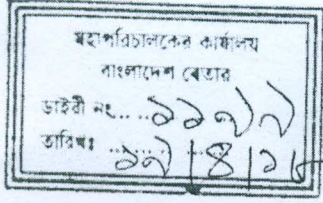 মহাপরিচালকের কার্যালয়
বাংলাদেশ বেতার
ডাইরী নং.....১১৭৭
তারিখঃ ১৭/৪/১৮